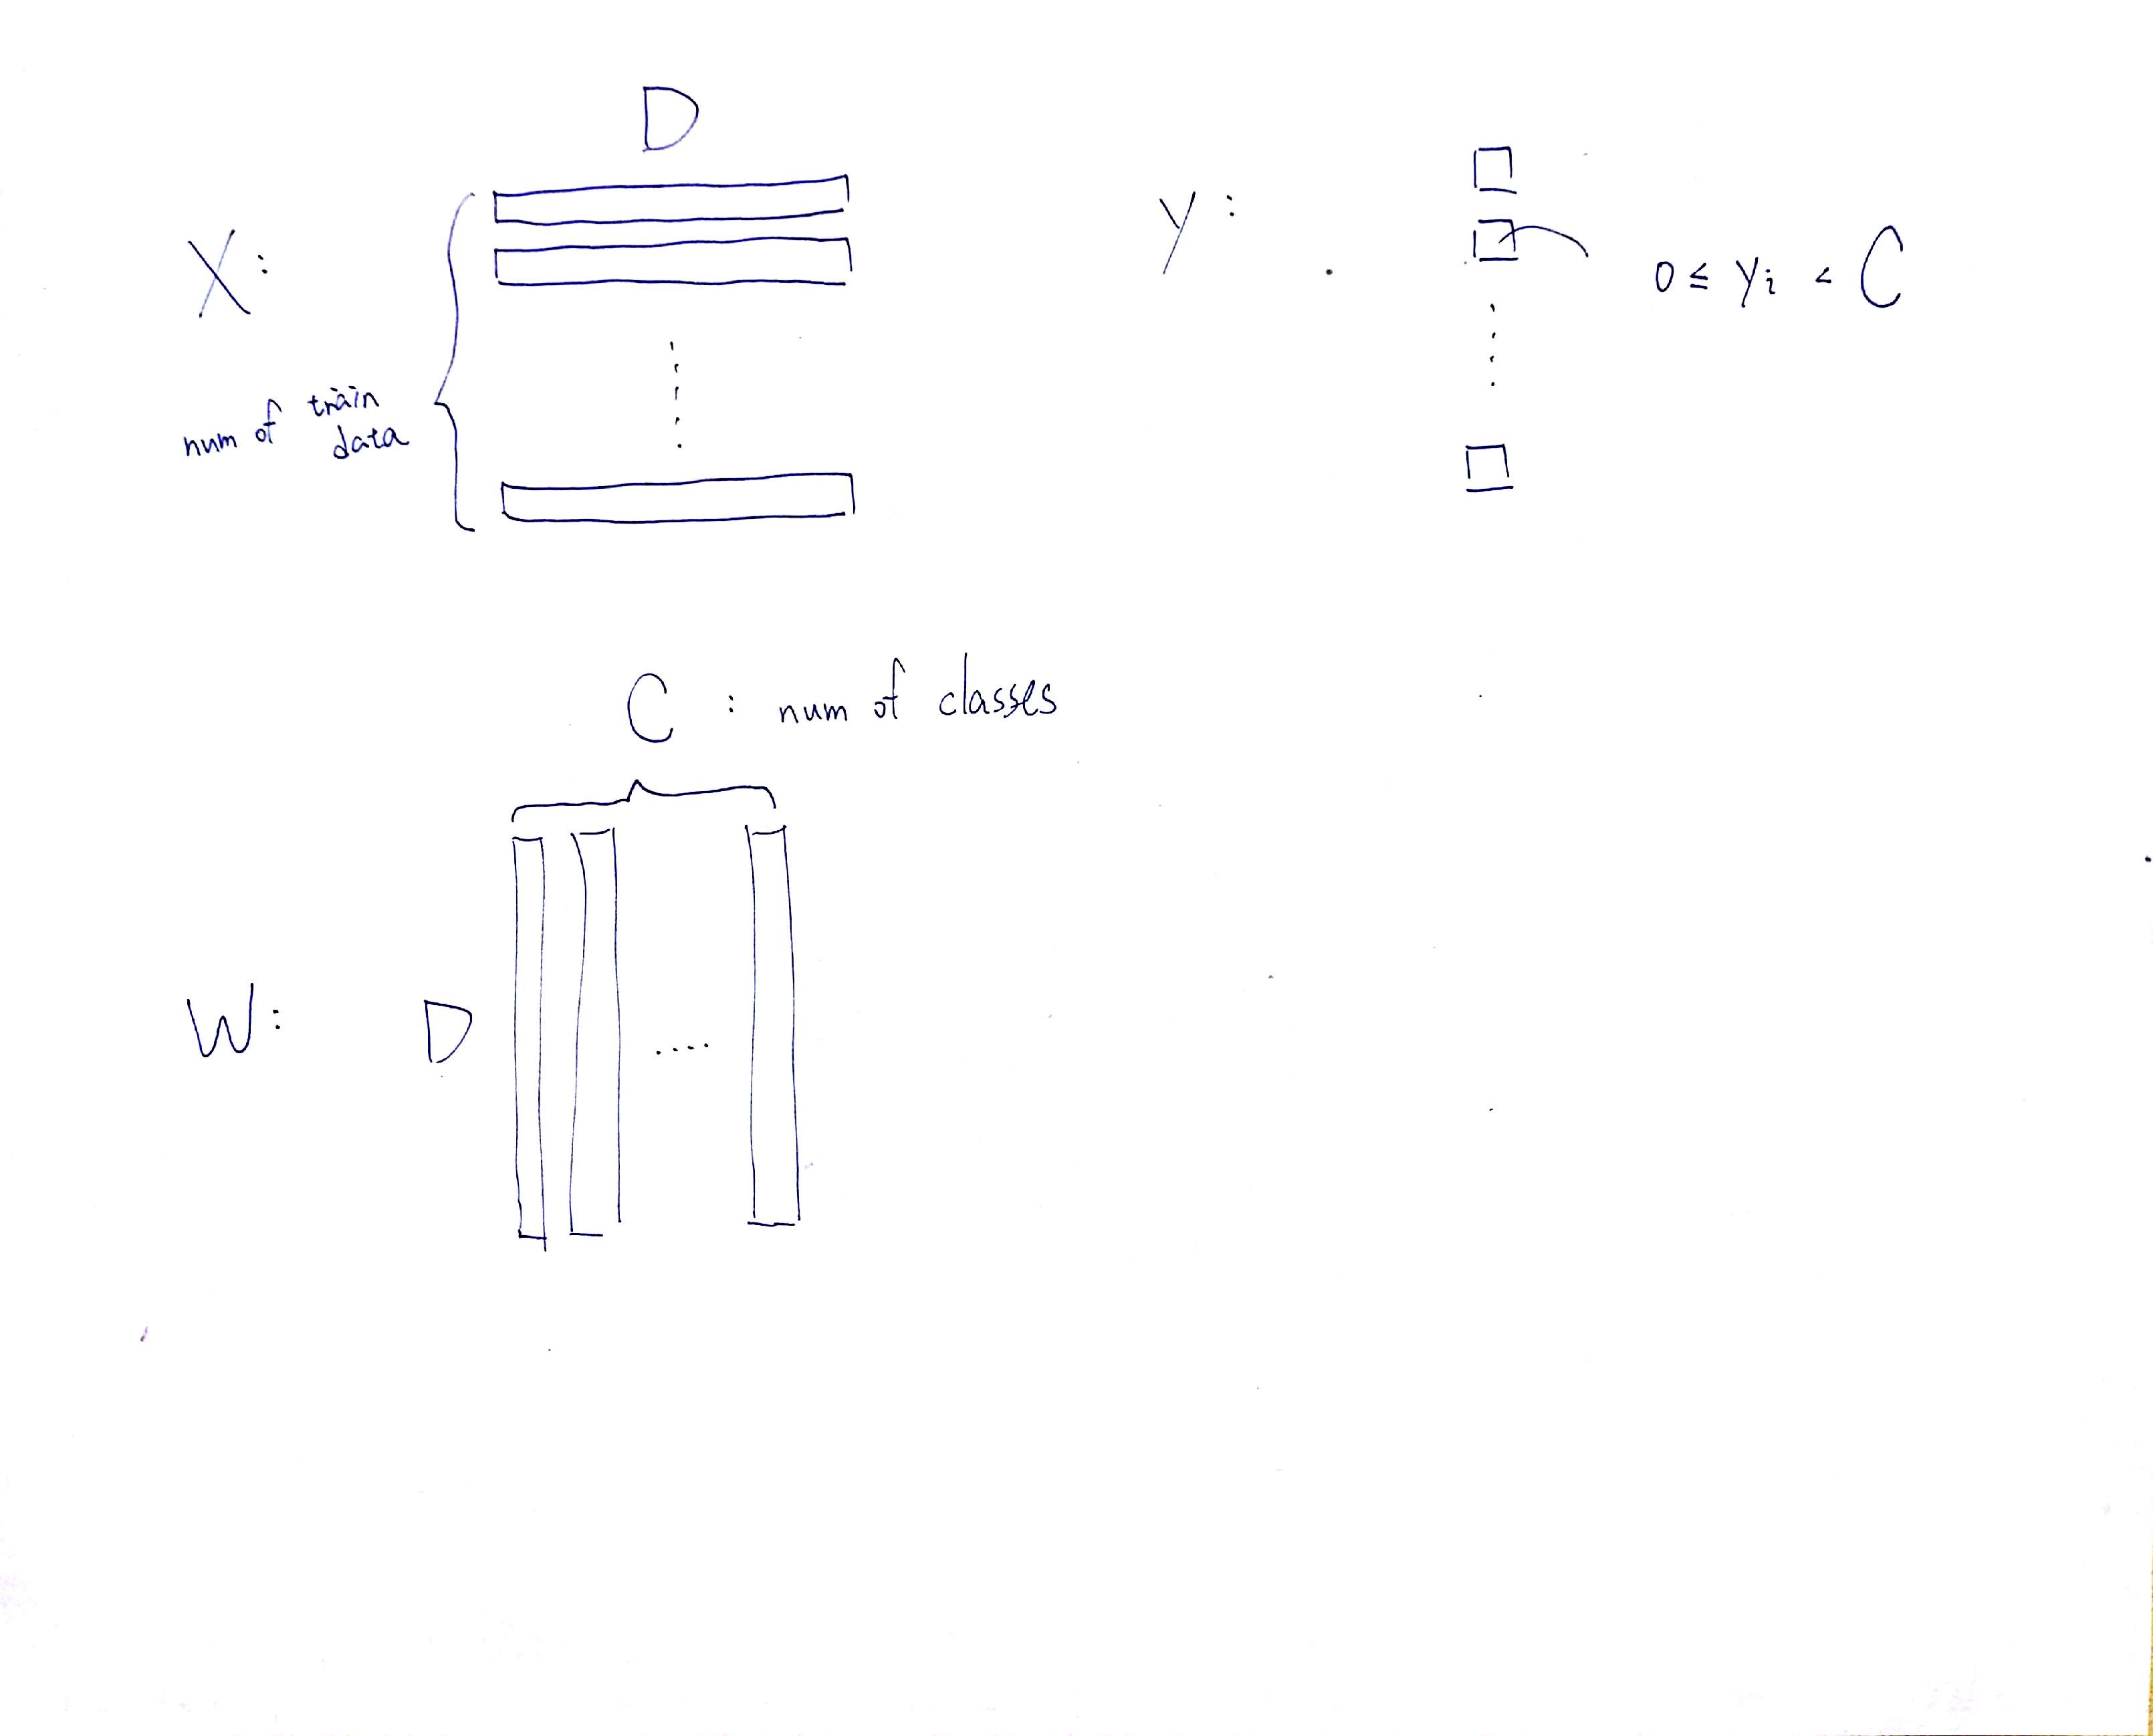 D
X:
num of train data
Y:
0 ≤ yi < C
C : num of classes
W: D